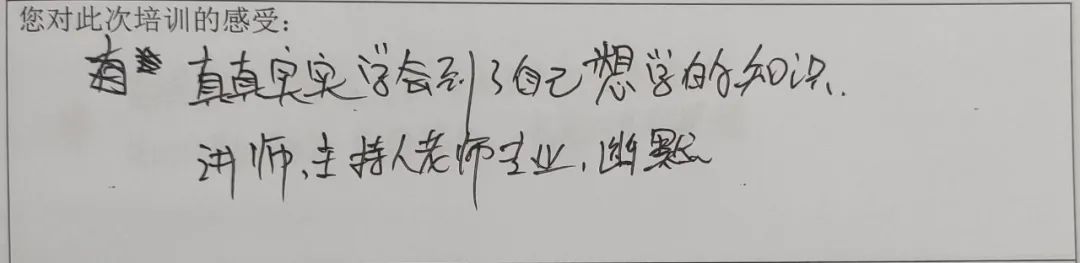 您对此次培训的感受:
真真实实学会到了自己想学的知识.
讲师、主持人老师专业,幽默